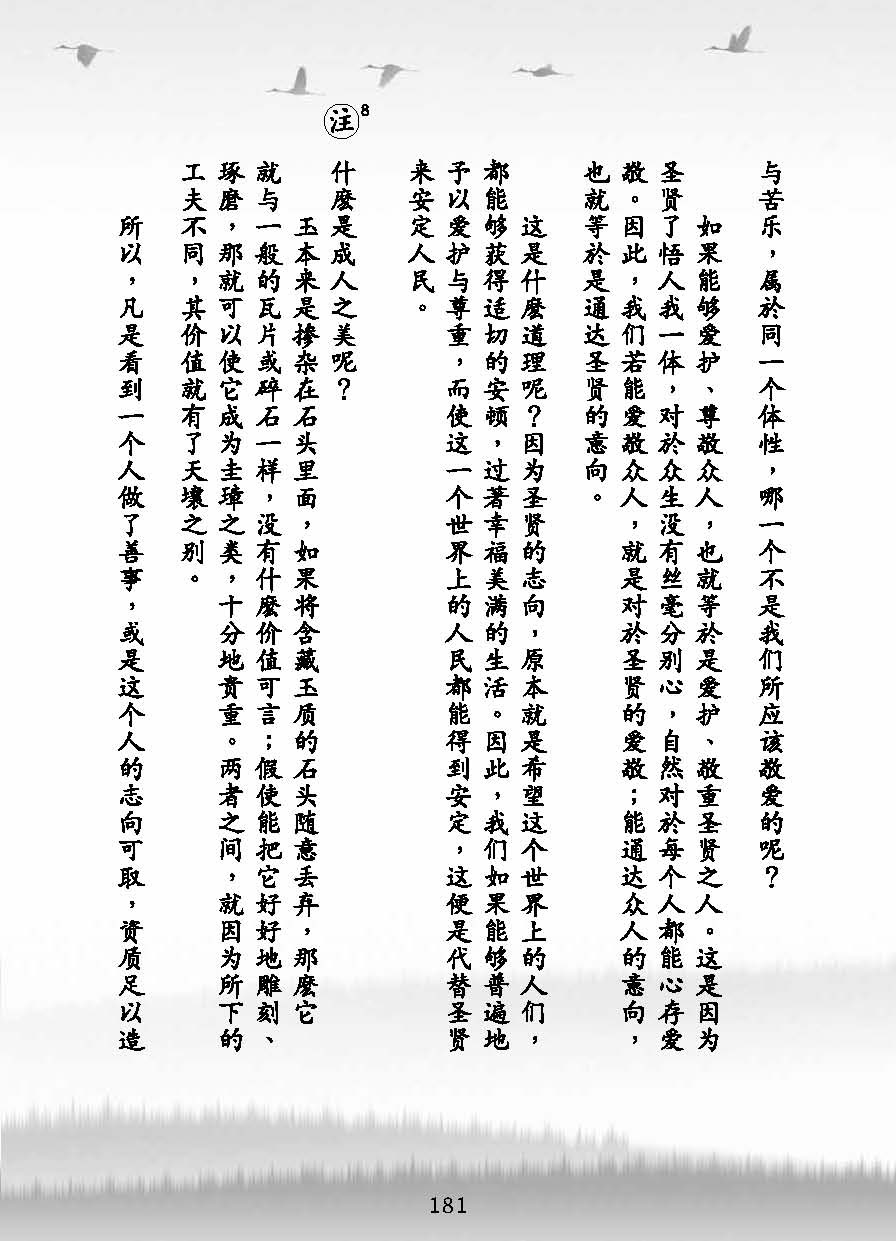 与苦乐，属於同一个体性，哪一个不是我们所应该敬爱的呢？
如果能够爱护、尊敬众人，也就等於是爱护、敬重圣贤之人。这是因为
圣贤了悟人我一体，对於众生没有丝毫分别心，自然对於每个人都能心存爱
敬。因此，我们若能爱敬众人，就是对於圣贤的爱敬；能通达众人的意向，
也就等於是通达圣贤的意向。
这是什麽道理呢？因为圣贤的志向，原本就是希望这个世界上的人们，
都能够获得适切的安顿，过著幸福美满的生活。因此，我们如果能够普遍地
予以爱护与尊重，而使这一个世界上的人民都能得到安定，这便是代替圣贤
来安定人民。
注8
什麽是成人之美呢？
玉本来是掺杂在石头里面，如果将含藏玉质的石头随意丢弃，那麽它
就与一般的瓦片或碎石一样，没有什麽价值可言；假使能把它好好地雕刻、
琢磨，那就可以使它成为圭璋之类，十分地贵重。两者之间，就因为所下的
工夫不同，其价值就有了天壤之别。
所以，凡是看到一个人做了善事，或是这个人的志向可取，资质足以造
181